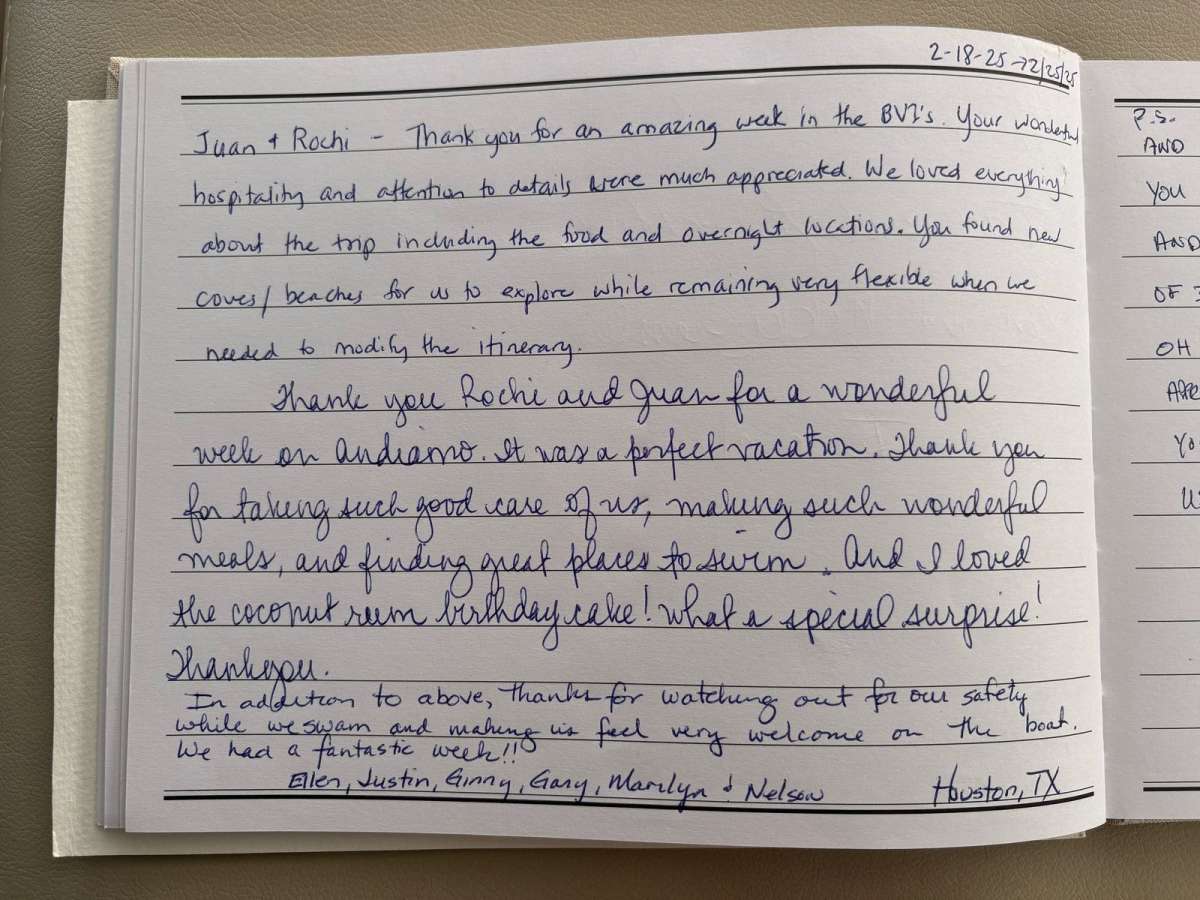 2-18-25 → 2/25/25
Juan + Rochi - Thank you for an amazing week in the BVI's. Your wonderful
hospitality and attention to details were much appreciated. We loved everything
about the trip including the food and overnight locations. You found new
coves/beaches for us to explore while remaining very flexible when we
needed to modify the itinerary.
Thank you Rochi and Juan for a wonderful
week on Andiamo. It was a perfect vacation. Thank you
for taking such good care of us, making such wonderful
meals, and finding great places to swim. And I loved
the coconut rum birthday cake! What a special surprise!
Thank you.
In addition to above, thanks for watching out for our safety
while we swam and making us feel very welcome on the boat.
We had a fantastic week!!
Ellen, Justin, Ginny, Gary, Marilyn & Nelson Houston, TX
P.S.
AND
YOU
AND
OF
OH